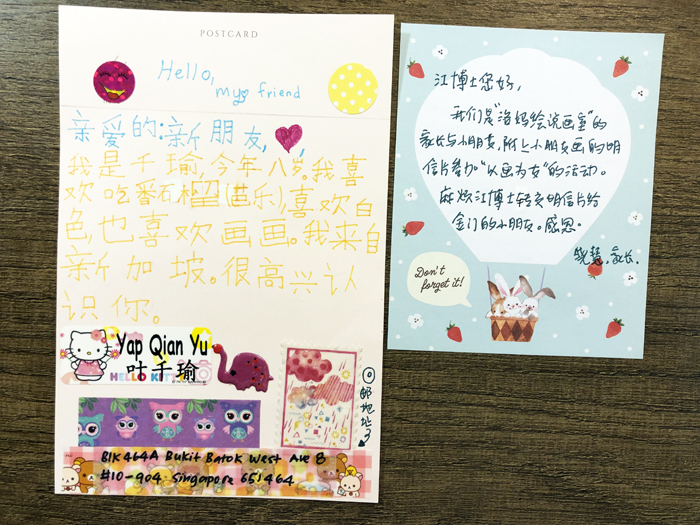 POSTCARD
Hello,
my friend
亲爱的:新朋友,
我是千瑜,今年八岁。我喜
欢吃番石榴(芭乐),喜欢白
色,也喜欢画画。我来自
新加坡。很高兴认
识你。
Yap Qian Yu
叶千瑜
HELLO KITTY
邮地址
BlK 464A Bukit Batok West Ave 8
#10-904. Singapore 651464
江博士您好,
我们是"洛妈绘说画画"的
家长与小朋友,附上小朋友画的明
信片参加"以画为友"的活动。
麻烦江博士转交明信片给
金门的小朋友。感恩。
晓慧,家长.
Don't
forget it!